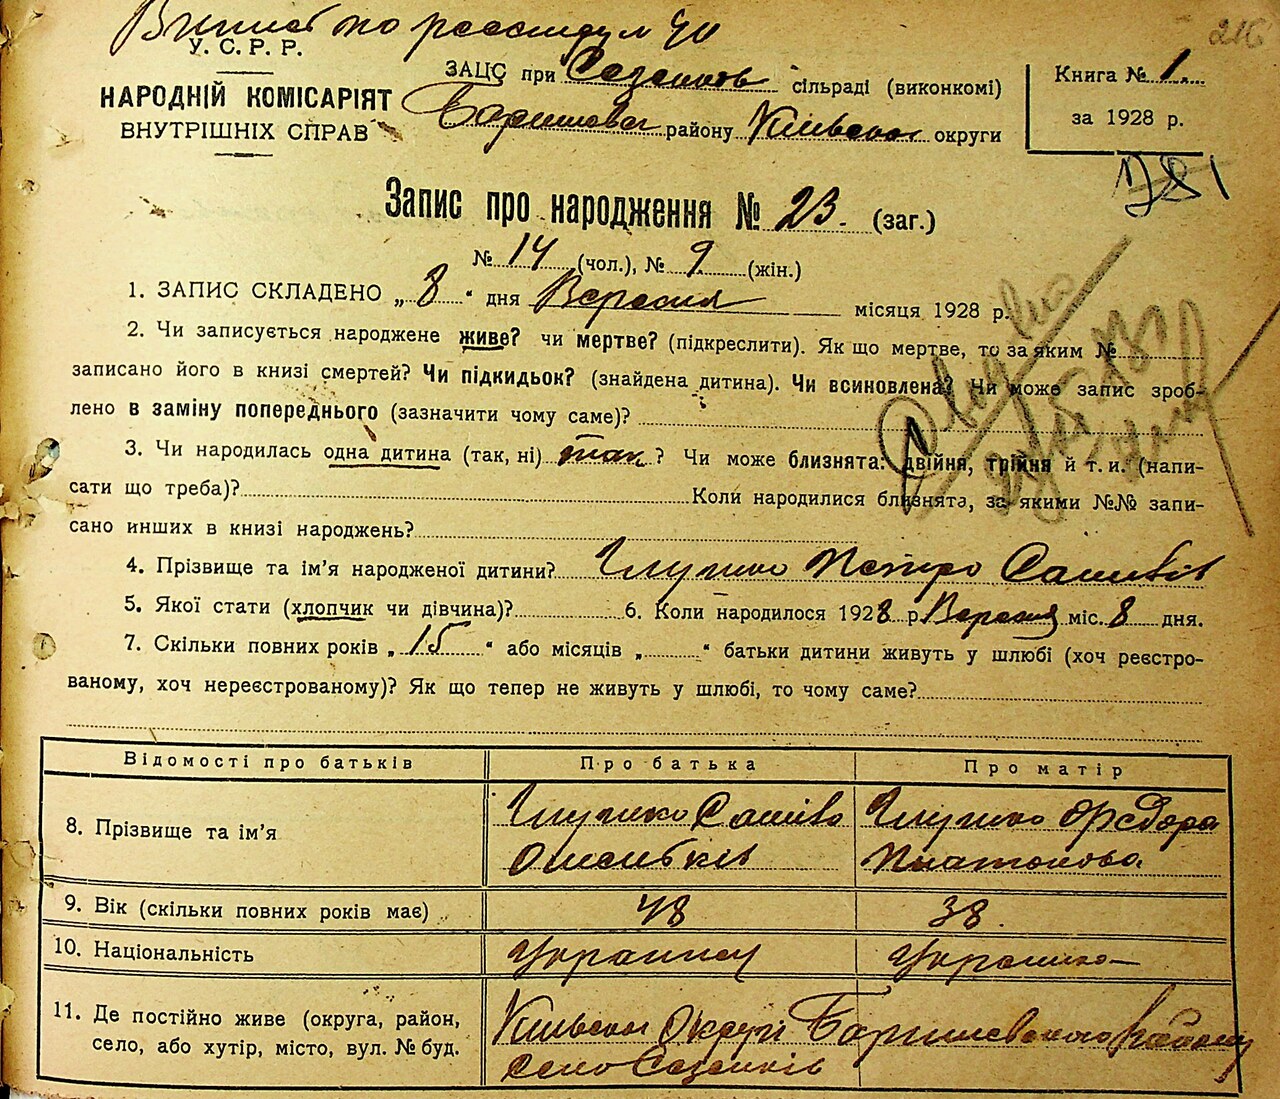 216
У. С. Р. Р.
НАРОДНІЙ КОМІСАРІЯТ
ВНУТРІШНІХ СПРАВ
ЗАЦС при Сезенков сільраді (виконкомі)
району Київської округи
Книга № 1
за 1928 р.
Запис про народження № 23. (заг.)
№ 14 (чол.), № 9 (жін.)
1. ЗАПИС СКЛАДЕНО „ 8 “ дня Вересня місяця 1928 р.
2. Чи записується народжене живе? чи мертве? (підкреслити). Як що мертве, то за яким №
записано його в книзі смертей? Чи підкидьок? (знайдена дитина). Чи всиновлена? Чи може запис зроб-
лено в заміну попереднього (зазначити чому саме)?
3. Чи народилась одна дитина (так, ні) так ? Чи може близнята: двійня, трійня й т. и. (напи-
сати що треба)? Коли народилися близнята, за якими №№ запи-
сано инших в книзі народжень?
4. Прізвище та ім’я народженої дитини? Глушко Петро Савивів
5. Якої стати (хлопчик чи дівчина)? 6. Коли народилося 1928 р. Вересня міс. 8 дня.
7. Скільки повних років „ 15 “ або місяців „ “ батьки дитини живуть у шлюбі (хоч реєстро-
ваному, хоч нереєстрованому)? Як що тепер не живуть у шлюбі, то чому саме?
Відомості про батьків Про батька Про матір
8. Прізвище та ім’я
Глушко Глушко
9. Вік (скільки повних років має) 48 38
10. Національність Украинец Украинка
11. Де постійно живе (округа, район,
село, або хутір, місто, вул. № буд.
Київської Округи Баришевського Району
село Сезенків